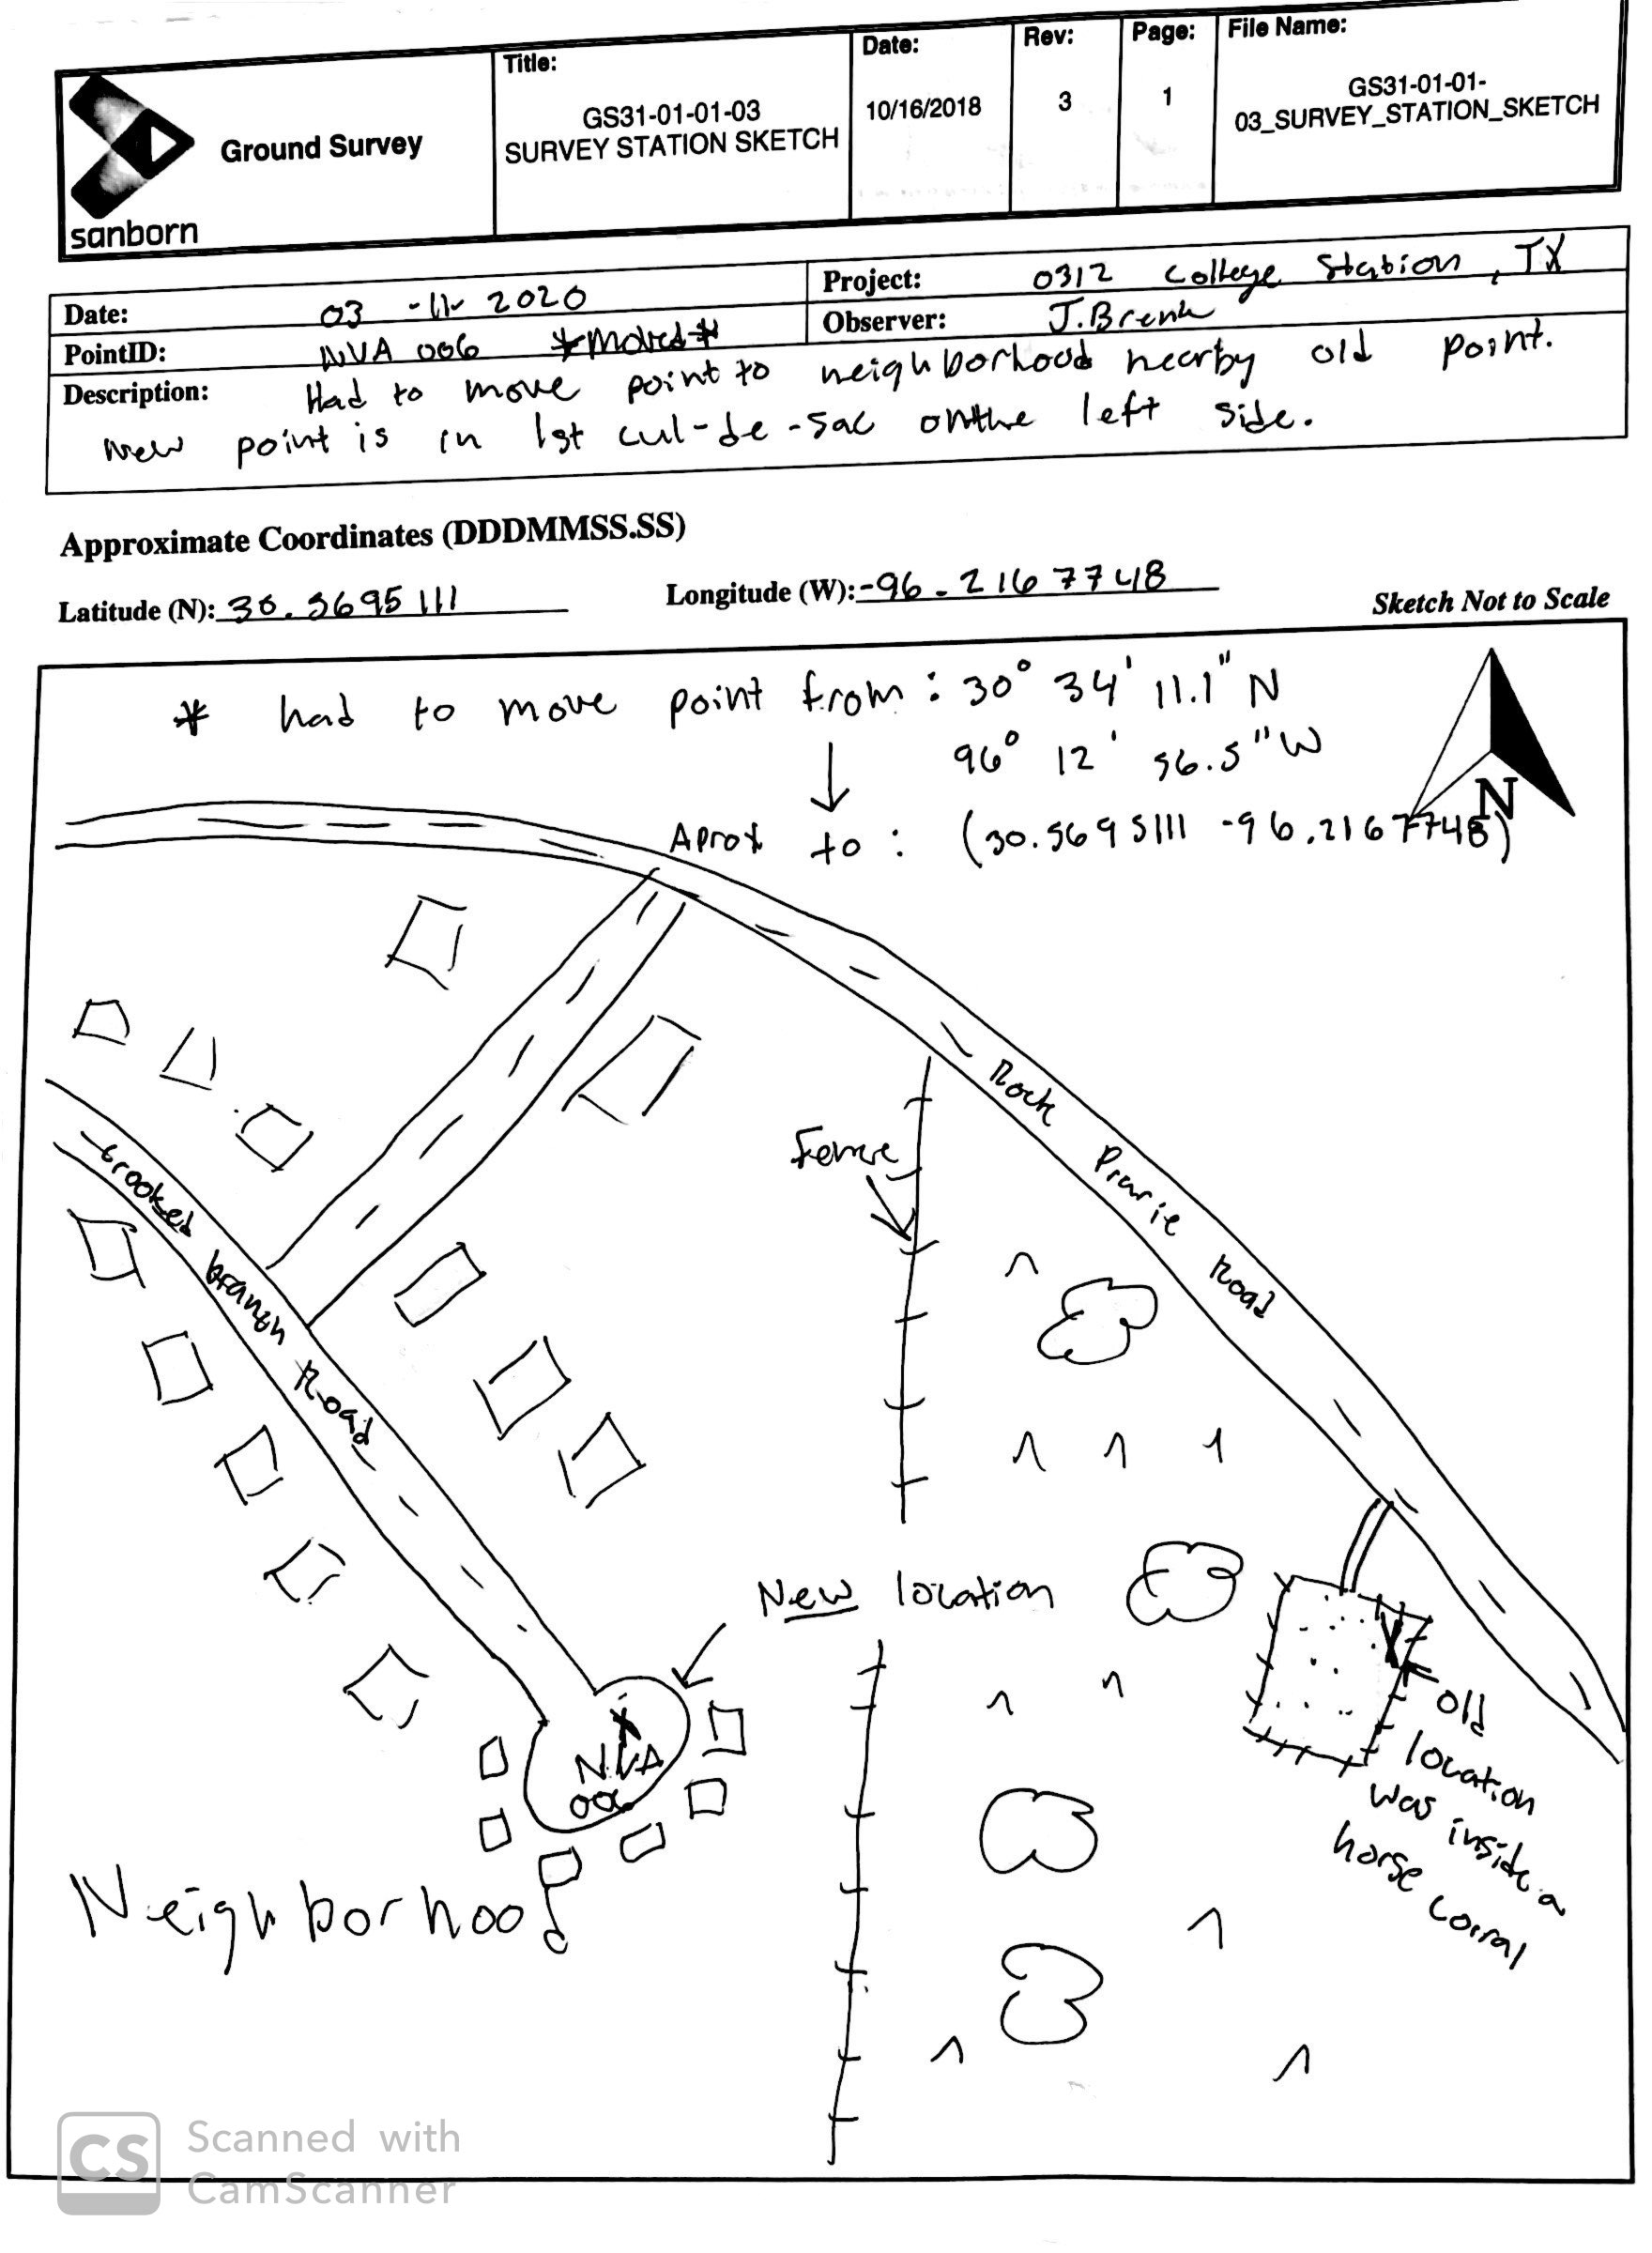 Title:
Date:
Rev:
Page:
File Name:
Ground Survey
GS31-01-01-03
SURVEY STATION SKETCH
10/16/2018
3
1
GS31-01-01-
03_SURVEY_STATION_SKETCH
sanborn
Date: 03-11-2020
Project: 0312 College Station, TX
PointID: NVA 006 *Moved*
Observer: J.Brenk
Description: Had to move point to neighborhood nearby old point.
New point is in 1st cul-de-sac on the left side.
Approximate Coordinates (DDDMMSS.SS)
Latitude (N): 30.5695111
Longitude (W): -96.2167748
Sketch Not to Scale
* had to move point from: 30° 34' 11.1" N
96° 12' 56.5" W
N
Aprox to: (30.5695111 -96.2167748)
Rock Prarie Road
Fence
Crooked branch Road
New location
X
NVA
006
old
location
was inside a
horse corral
Neighborhood
CS
Scanned with
CamScanner